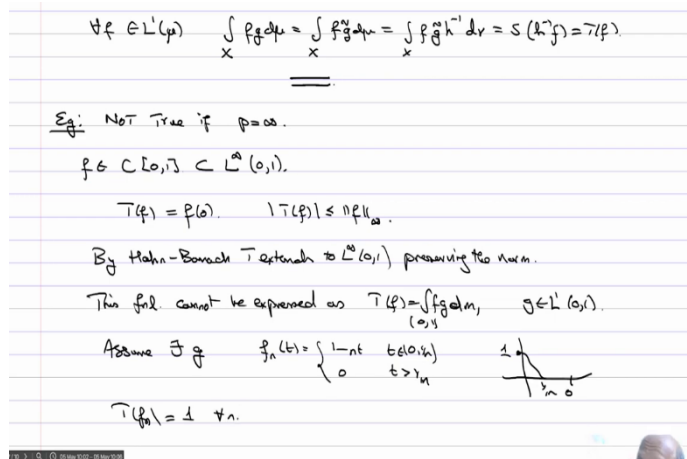 ∀f ∈ L¹(μ) ∫_X f g dμ = ∫_X f g̃ dμ = ∫_X f g̃ h⁻¹ dν = S(h⁻¹f) = T(f).
Eg: NOT True if p=∞.
f ∈ C[0,1] ⊂ L^∞(0,1).
T(f) = f(0). |T(f)| ≤ ‖f‖_∞.
By Hahn-Banach T extends to L^∞(0,1) preserving the norm.
This fnl. cannot be expressed as T(f) = ∫_(0,1) f g dm, g ∈ L¹(0,1).
Assume ∃ g f_n(t) = { 1-nt t∈(0,1/n) 1
0 t > 1/n 1/n 0
T(f_n) = 1 ∀n.